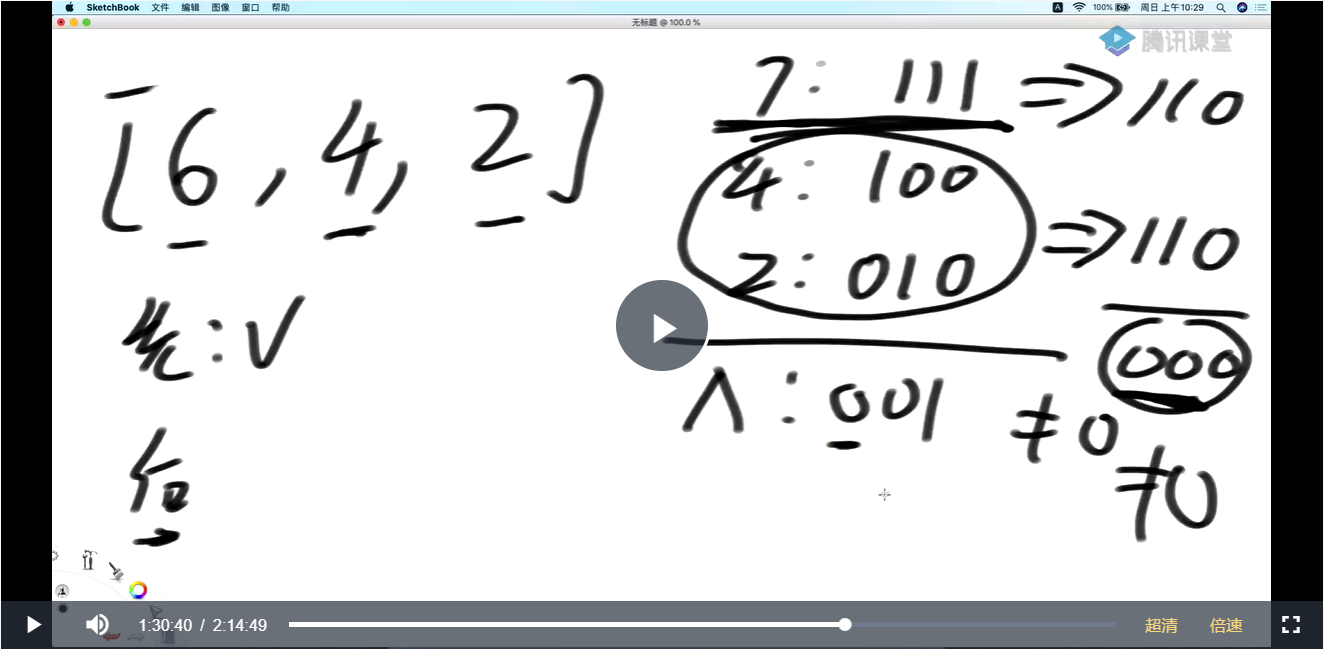 SketchBook 文件 编辑 图像 窗口 帮助 A 100% 周日 上午10:29
无标题 @ 100.0 %
腾讯课堂
[6, 4, 2]
先:V
后
7: 111 => 110
4: 100
2: 010 => 110
000
∧: 001 ≠0
≠0
1:30:40 / 2:14:49 超清 倍速